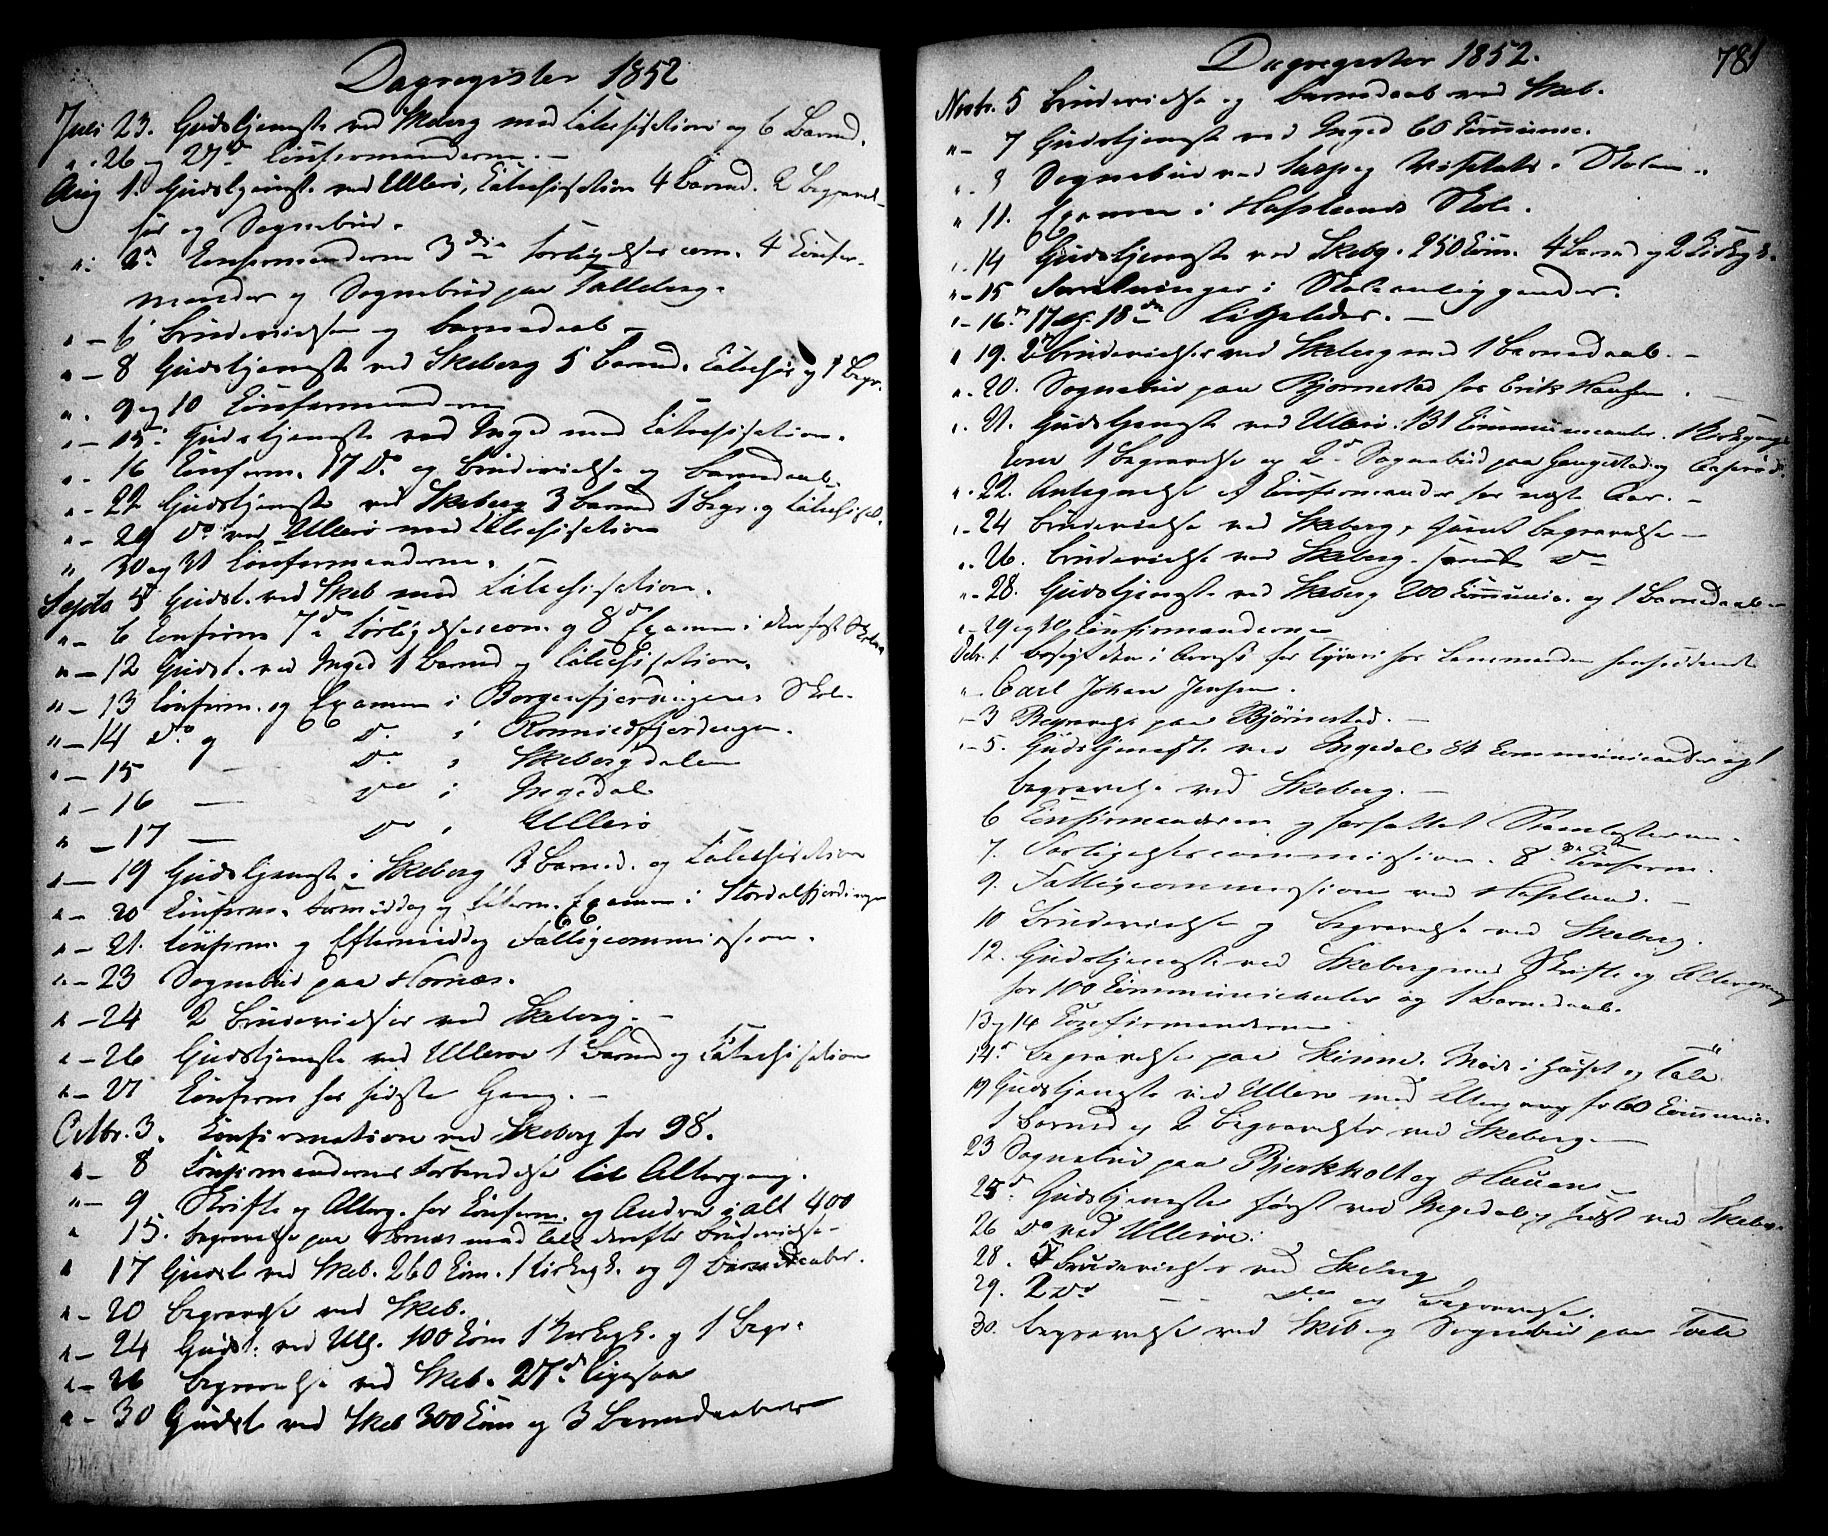 Dagregister 1852
Juli 23. Gudstjeneste ved Skeberg med Catechisation og 6 Barned.
" 26 og 27de Confirmanderne. –
Aug 1. Gudstjeneste ved Ullerö, Catechisation 4 Barned. 2 Begravel-
ser og Sognebud.
" 2n Confirmanderne 3die Forligelsescom. 4 Confir-
mander og Sognebud paa
" – 6 Brudevielse og Barnedaab –
" – 8 Gudstjeneste ved Skeberg 5 Barned. Catechis og 1 Begr.
" 9 og 10 Confirmanderne
" – 15. Gudstjeneste ved Inged med Catechisation.
" – 16 Confirm. 17 Do og Brudevielse og Barnedaab
" – 22 Gudstjeneste ved Skeberg 3 Barned 1 Begr. og Catechisat.
" – 29 Do ved Ullerö med Catechisation
" 30 og 31 Confirmanderne.
Septb 5 Gudst. ved Skeb med Catechisation.
" – 6 Confirm 7de Forligelsescom. og 8de Examen i den faste Skole
" – 12 Gudst. ved Inged 1 Barned og Catechisation.
" – 13 Confirm. og Examen i Borgenfjerdingens Skole.
" – 14 Do og Do i fjerdingen.
" – 15 – Do i Skebergdalen
" – 16 – Do i Ingedal
" – 17 – Do i Ullerö
" – 19 Gudstjeneste i Skeberg 3 Barned. og Catechisation
" – 20 Confirm. Formiddag og Efterm. Examen i Stordalfjerdingen
" – 21. Confirm. og Eftermiddag Fattigcommission.
" – 23 Sognebud paa Hornæs.
" – 24 2 Brudevielser ved Skeberg. –
" – 26 Gudstjeneste ved Ulleröe 1 Barned og Catechisation
" – 27 Confirm for sidste Gang. –
Octbr. 3. Confirmation ved Skeberg for 98.
" – 8 Confirmandernes Forberedelse til Altergang.
" – 9 Skrifte og Alterg. for Confirm. og Andre i alt 400
" 15. Begravelse paa Hornæs med Tale derefter Brudevielse
" 17 Gudst ved Skeb. 260 Com. 1 Kirkegk. og 9 Barnedaaber.
" – 20 Begravelse ved Skeb.
" – 24 Gudst. ved Ull. 100 Com 1 Kirkegk. og 1 Begr.
" – 26 Begravelse ved Skeb. 27de ligesaa
" – 30 Gudst ved Skeb 300 Com og 3 Barnedaaber
Dagregister 1852.
781
Novbr. 5 Brudevielse og Barnedaab ved Skeb.
" – 7 Gudstjeneste ved Inged 60 Commun.
" 9 Sognebud ved
" 11. Examen i Hafslunds Skole.
" 14 Gudstjeneste ved Skebg. 250 Com. 4 Barned og 2 Kirkegk.
" – 15 i Skoleanliggender.
" – 16de 17 og 18de ligeledes. –
" 19. 2de Brudevielser ved Skeberg med 1 Barnedaab. –
" 20. Sognebud paa Bjørnestad for Erik Hansen. –
" 21. Gudstjeneste ved Ullerö. 131 Communicanter. 1 Kirkegangs
Kone 1 Begravelse og 2de Sognebud paa og
" 22. Antegnelse af Confirmander for næste Aar. –
" 24 Brudevielse ved Skeberg, samt Begravelse –
" 26. Brudevielse ved Skeberg. samt Do
" – 28. Gudstjeneste ved Skeberg 200 Commun. og 1 Barnedaab –
" – 29 og 30 Confirmanderne
Debr. 1. Besøgt den i Arrest for Tyveri hos Lensmanden
" – Carl Johan Jensen.
" – 3 Begravelse paa Bjørnestad. –
" – 5. Gudstjeneste ved Ingedal 84 Communicanter og 1
Begravelse ved Skeberg. –
6 Confirmanderne og forfattet
7. Forligelsescommission. 8de Confirm.
9. Fattigcommission ved Hafslund. –
10 Brudevielse og Begravelse ved Skeberg.
12. Gudstjeneste ved Skeberg med Skrifte og Altergang
for 100 Communicanter og 1 Barnedaab.
13 og 14 Confirmanderne
14de Begravelse paa Skinne. Mode i Huset og Tale
19 Gudstjeneste ved Ullerö med Altergang for 60 Commun.
1 Barned og 2 Begravelser ved Skeberg. –
23 Sognebud paa Bjerkholt og Hauen –
25de. Gudstjeneste først ved Ingedal og sidst ved Skeberg
26 Do ved Ulleröe.
28. 5 Brudevielser ved Skeberg
29. 2 Do – – Do og Begravelse.
30. Begravelse ved Skeb og Sognebud paa